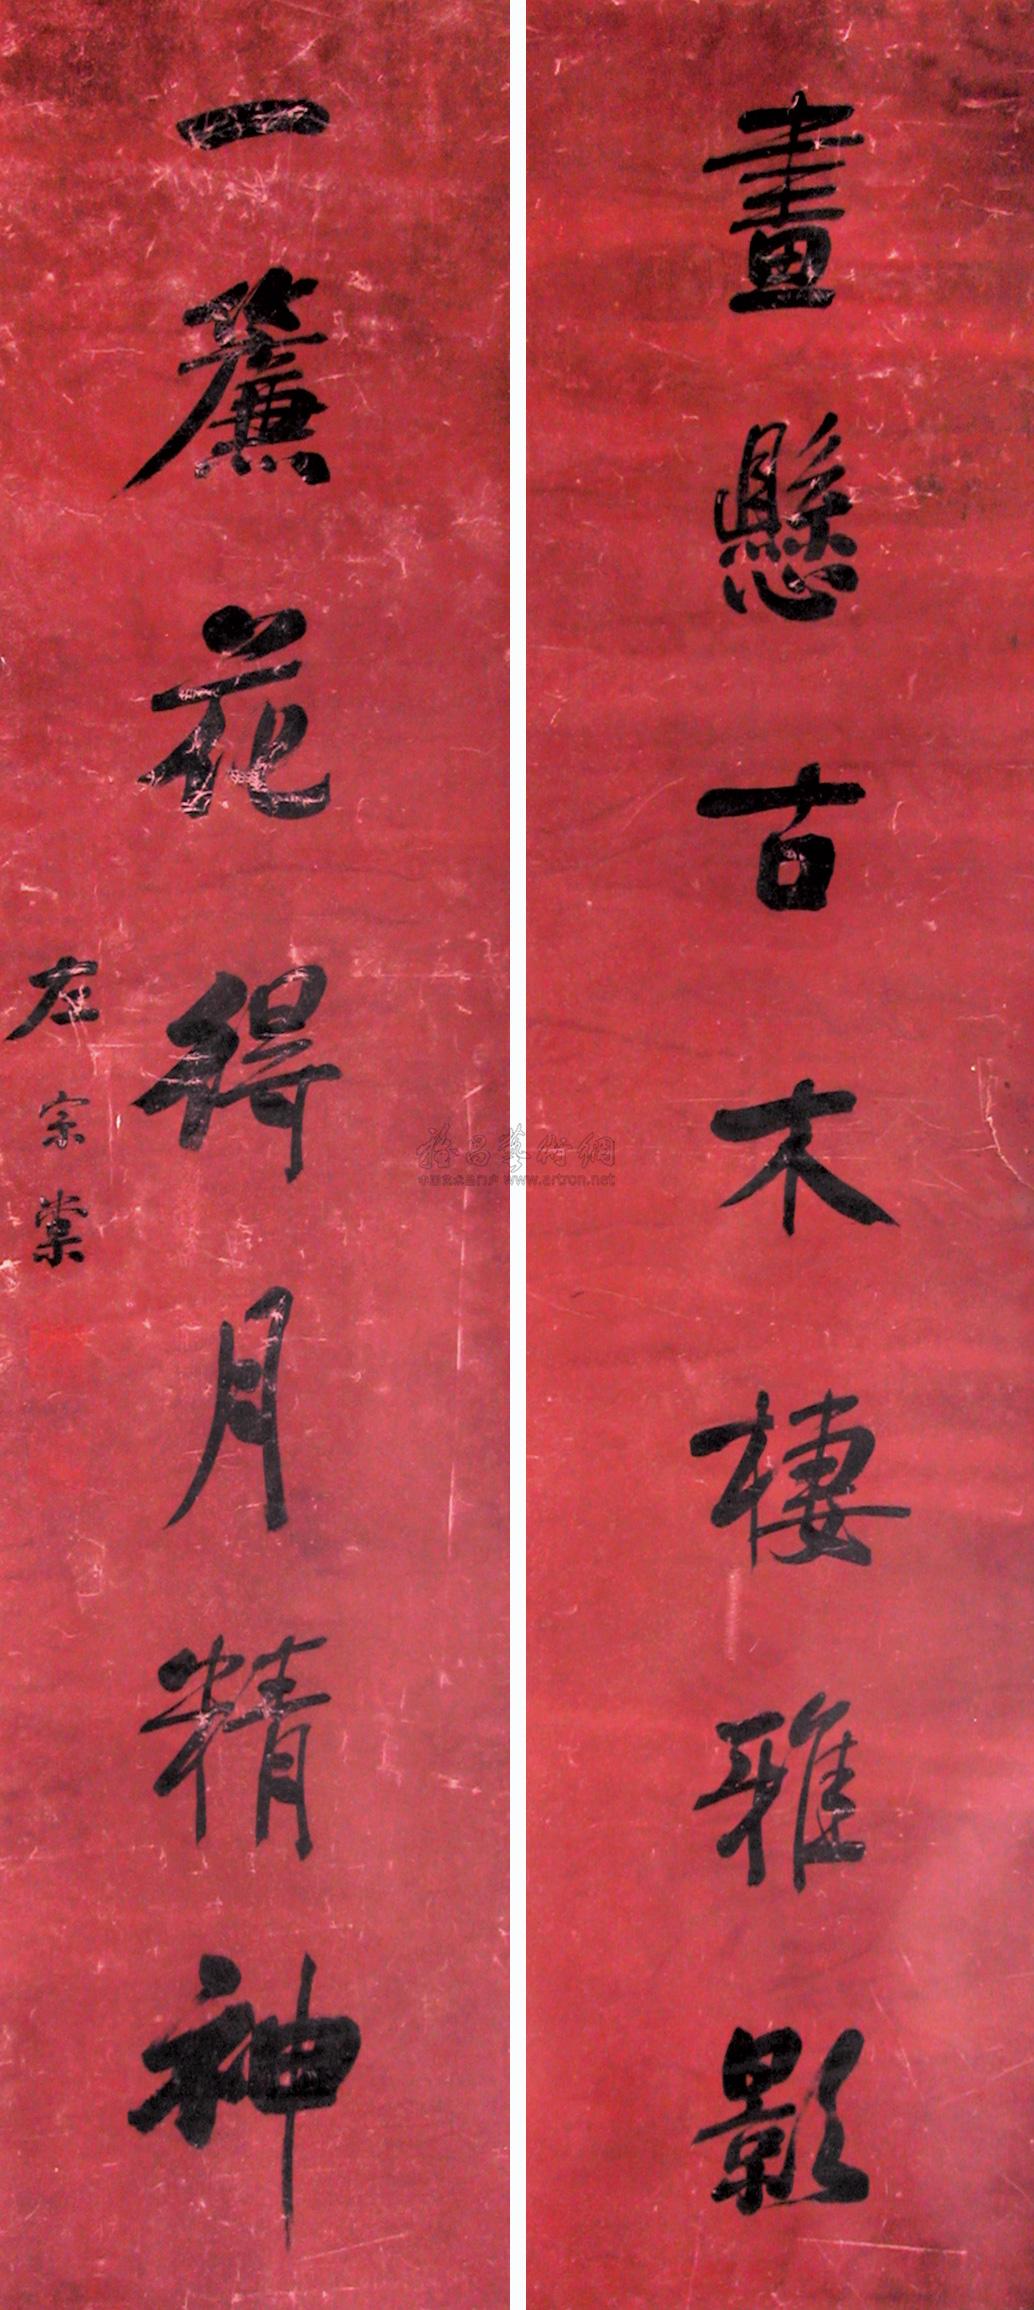 畫懸古木棲雅影
一簾花得月精神
左宗棠
雅昌藝術網
www.artron.net